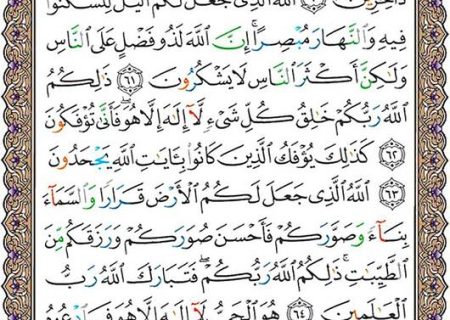 دَاخِرِينَ ٦٠ ٱللَّهُ ٱلَّذِى جَعَلَ لَكُمُ ٱلَّيْلَ لِتَسْكُنُوا۟
فِيهِ وَٱلنَّهَارَ مُبْصِرًا ۚ إِنَّ ٱللَّهَ لَذُو فَضْلٍ عَلَى ٱلنَّاسِ
وَلَٰكِنَّ أَكْثَرَ ٱلنَّاسِ لَا يَشْكُرُونَ ٦١ ذَٰلِكُمُ
ٱللَّهُ رَبُّكُمْ خَٰلِقُ كُلِّ شَىْءٍ لَّآ إِلَٰهَ إِلَّا هُوَ ۖ فَأَنَّىٰ تُؤْفَكُونَ
٦٢ كَذَٰلِكَ يُؤْفَكُ ٱلَّذِينَ كَانُوا۟ بِـَٔايَٰتِ ٱللَّهِ يَجْحَدُونَ
٦٣ ٱللَّهُ ٱلَّذِى جَعَلَ لَكُمُ ٱلْأَرْضَ قَرَارًا وَٱلسَّمَآءَ
بِنَآءً وَصَوَّرَكُمْ فَأَحْسَنَ صُوَرَكُمْ وَرَزَقَكُم مِّنَ
ٱلطَّيِّبَٰتِ ۚ ذَٰلِكُمُ ٱللَّهُ رَبُّكُمْ ۖ فَتَبَارَكَ ٱللَّهُ رَبُّ
ٱلْعَٰلَمِينَ ٦٤ هُوَ ٱلْحَىُّ لَآ إِلَٰهَ إِلَّا هُوَ فَٱدْعُوهُ